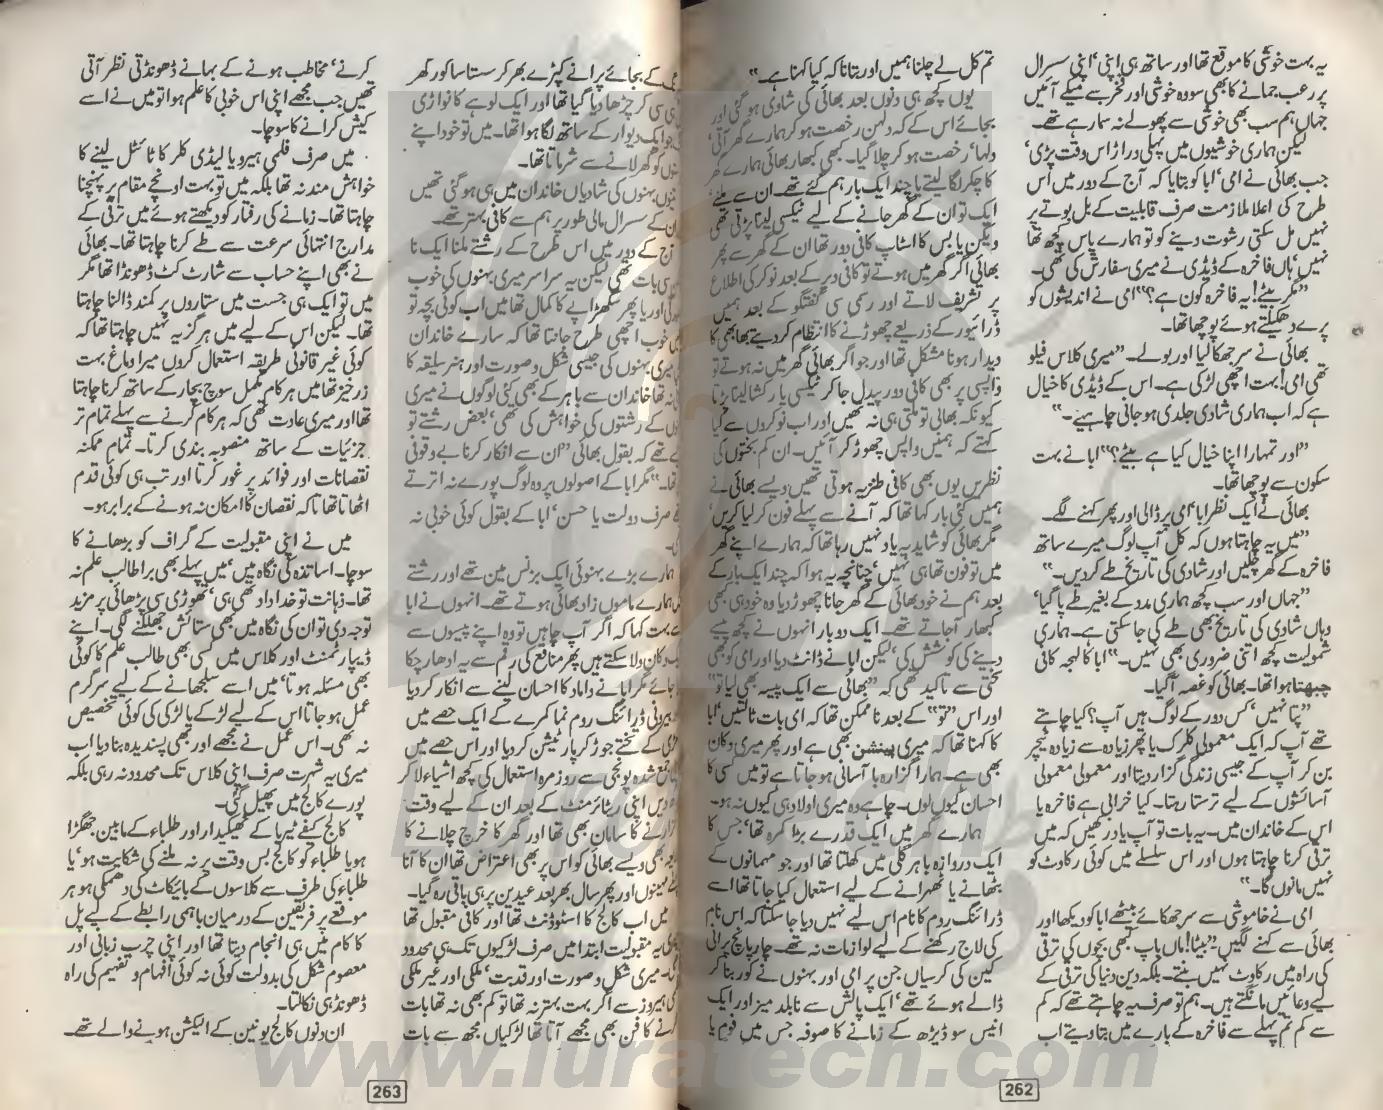 یہ بہت خوشی کا موقع تھا اور ساتھ ہی اپنی اپنی سسرال
پر رعب جمانے کا بھی سو وہ خوشی اور فخر سے میکے آئیں
جہاں ہم سب بھی خوشی سے پھولے نہ سما رہے تھے۔
لیکن ہماری خوشیوں میں پہلی دراڑ اس وقت پڑی‘
جب بھائی نے امی‘ ابا کو بتایا کہ آج کے دور میں اس
طرح کی اعلا ملازمت صرف قابلیت کے بل بوتے پر
نہیں مل سکتی رشوت دینے کو تو ہمارے پاس کچھ تھا
نہیں‘ ہاں فاخرہ کے ڈیڈی نے میری سفارش کی تھی۔
”مگر بیٹے! یہ فاخرہ کون ہے؟“ امی نے اندیشوں کو
پرے دھکیلتے ہوئے پوچھا تھا۔
بھائی نے سر جھکا لیا اور بولے۔ ”میری کلاس فیلو
تھی امی! بہت اچھی لڑکی ہے۔ اس کے ڈیڈی کا خیال
ہے کہ اب ہماری شادی جلدی ہو جانی چاہیے۔“
”اور تمہارا اپنا خیال کیا ہے بیٹے؟“ ابا نے بہت
سکون سے پوچھا تھا۔
بھائی نے ایک نظر ابا‘ امی پر ڈالی اور پھر کہنے لگے۔
”میں یہ چاہتا ہوں کہ کل آپ لوگ میرے ساتھ
فاخرہ کے گھر چلیں اور شادی کی تاریخ طے کر دیں۔“
”جہاں اور سب کچھ ہماری مدد کے بغیر طے پا گیا‘
وہاں شادی کی تاریخ بھی طے کی جا سکتی ہے۔ ہماری
شمولیت کچھ اتنی ضروری بھی نہیں۔“ ابا کا لہجہ کافی
چبھتا ہوا تھا۔ بھائی کو غصہ آ گیا۔
”پتا نہیں‘ کس دور کے لوگ ہیں آپ؟ کیا چاہتے
تھے آپ کہ ایک معمولی کلرک یا پھر زیادہ سے زیادہ ٹیچر
بن کر آپ کے جیسی زندگی گزار دیتا اور معمولی معمولی
آسائشوں کے لیے ترستا رہتا۔ کیا خرابی ہے فاخرہ یا
اس کے خاندان میں۔ یہ بات تو آپ یاد رکھیں کہ میں
ترقی کرنا چاہتا ہوں اور اس سلسلے میں کوئی رکاوٹ کو
نہیں مانوں گا۔“
امی نے خاموشی سے سر جھکائے بیٹھے ابا کو دیکھا اور
بھائی سے کہنے لگیں۔ ”بیٹا! ماں باپ کبھی بچوں کی ترقی
کی راہ میں رکاوٹ نہیں بنتے۔ بلکہ دین دنیا کی ترقی کے
لیے دعائیں مانگتے ہیں۔ ہم تو صرف یہ چاہتے تھے کہ کم
سے کم تم پہلے سے فاخرہ کے بارے میں بتا دیتے اب
تم کل لے چلنا ہمیں اور بتانا کہ کیا کہنا ہے۔“
یوں کچھ ہی دنوں بعد بھائی کی شادی ہو گئی اور
بجائے اس کے کہ دلہن رخصت ہو کر ہمارے گھر آتی‘
دولہا‘ رخصت ہو کر چلا گیا۔ کبھی کبھار بھائی ہمارے گھر
کا چکر لگا لیتے یا چند ایک بار ہم گئے تھے۔ ان سے ملنے‘
ایک تو ان کے گھر جانے کے لیے ٹیکسی لینا پڑتی تھی
ویگن یا بس کا اسٹاپ کافی دور تھا ان کے گھر سے پھر
بھائی اگر گھر میں ہوتے تو کافی دیر کے بعد نوکر کی اطلاع
پر تشریف لاتے اور رسمی سی گفتگو کے بعد ہمیں
ڈرائیور کے ذریعے چھوڑنے کا انتظام کر دیتے بھابھی کا
دیدار ہونا مشکل تھا اور جو اگر بھائی گھر میں نہ ہوتے تو
واپسی پر بھی کافی دور پیدل جا کر ٹیکسی یا رکشا لینا پڑتا
کیونکہ بھابی تو ملتی ہی نہ تھیں اور اب نوکروں سے کیا
کہتے کہ ہمیں واپس چھوڑ کر آئیں۔ ان کم بختوں کی
نظریں یوں بھی کافی طنزیہ ہوتی تھیں ویسے بھائی نے
ہمیں کئی بار کہا تھا کہ آنے سے پہلے فون کر لیا کریں‘
مگر بھائی کو شاید یہ یاد نہیں رہا تھا کہ ہمارے اپنے گھر
میں تو فون تھا ہی نہیں‘ چنانچہ یہ ہوا کہ چند ایک بار کے
بعد ہم نے خود بھائی کے گھر جانا چھوڑ دیا وہ خود ہی کبھی
کبھار آ جاتے تھے۔ ایک دو بار انہوں نے کچھ پیسے
دینے کی کوشش کی‘ لیکن ابا نے ڈانٹ دیا اور امی کو بھی
سختی سے تاکید تھی کہ ”بھائی سے ایک پیسہ بھی لیا تو“
اور اس ”تو“ کے بعد ناممکن تھا کہ امی بات ٹالتیں‘ ابا
کا کہنا تھا کہ میری پینشن بھی ہے اور پھر میری دکان
بھی ہے۔ ہمارا گزارہ با آسانی ہو جاتا ہے تو میں کسی کا
احسان کیوں لوں۔ چاہے وہ میری اولاد ہی کیوں نہ ہو۔
ہمارے گھر میں ایک قدرے بڑا کمرہ تھا‘ جس کا
ایک دروازہ باہر گلی میں کھلتا تھا اور جو مہمانوں کے
بٹھانے یا ٹھہرانے کے لیے استعمال کیا جاتا تھا اسے
ڈرائنگ روم کا نام اس لیے نہیں دیا جا سکتا کہ اس نام
کی لاج رکھنے کے لیے لوازمات نہ تھے۔ چار پانچ پرانی
کین کی کرسیاں جن پر امی اور بہنوں نے کور بنا کر
ڈالے ہوئے تھے‘ ایک پالش سے نابلد میز اور ایک
انیس سو ڈیڑھ کے زمانے کا صوفہ جس میں فوم یا
262
کے بجائے پرانے کپڑے بھر کر سستا سا کور گھر
ہی سی کر چڑھا دیا گیا تھا اور ایک لوہے کا نواڑی
جو ایک دیوار کے ساتھ لگا ہوا تھا۔ میں تو خود اپنے
کو گھر لانے سے شرماتا تھا۔
بہنوں کی شادیاں خاندان میں ہی ہو گئی تھیں
کے سسرال مالی طور پر ہم سے کافی بہتر تھے۔
آج کے دور میں اس طرح کے رشتے ملنا ایک نا
سی بات تھی لیکن یہ سراسر میری بہنوں کی خوب
یا پھر سگھڑاپے کا کمال تھا میں اب کوئی بچہ تو
خوب اچھی طرح جانتا تھا کہ سارے خاندان
میری بہنوں کی جیسی شکل و صورت اور ہنر سلیقہ کا
نہ تھا خاندان سے باہر کے بھی کئی لوگوں نے میری
کے رشتوں کی خواہش کی تھی‘ بعض رشتے تو
تھے کہ بقول بھائی ”ان سے انکار کرنا بے وقوفی
تھا۔“ مگر ابا کے اصولوں پر وہ لوگ پورے نہ اترتے
صرف دولت یا حسن‘ ابا کے بقول کوئی خوبی نہ
ہمارے بڑے بہنوئی ایک بزنس مین تھے اور رشتے
ہمارے ماموں زاد بھائی ہوتے تھے۔ انہوں نے ابا
بہت کہا کہ اگر آپ چاہیں تو وہ اپنے پیسوں سے
دکان ڈلوا سکتے ہیں پھر منافع کی رقم سے یہ ادھار چکا
جائے مگر ابا نے داماد کا احسان لینے سے انکار کر دیا
بیرونی ڈرائنگ روم نما کمرے کے ایک حصے میں
کے تختے جوڑ کر پارٹیشن کر دیا اور اس حصے میں
جمع شدہ پونجی سے روزمرہ استعمال کی کچھ اشیاء لا کر
دیں اپنی ریٹائرمنٹ کے بعد ان کے لیے وقت
گزارنے کا سامان بھی تھا اور گھر کا خرچ چلانے کا
بھی ویسے بھائی کو اس پر بھی اعتراض تھا ان کا آنا
مہینوں اور پھر سال بھر بعد عیدین پر ہی باقی رہ گیا۔
میں اب کالج کا اسٹوڈنٹ تھا اور کافی مقبول تھا
یہ مقبولیت ابتدا میں صرف لڑکیوں تک ہی محدود
میری شکل و صورت اور قد بت‘ ملکی اور غیر ملکی
ہیروز سے اگر بہت بہتر نہ تھا تو کم بھی نہ تھا بات
کرنے کا فن بھی مجھے آتا تھا لڑکیاں مجھ سے بات
کرنے‘ مخاطب ہونے کے بہانے ڈھونڈتی نظر آتی
تھیں جب مجھے اپنی اس خوبی کا علم ہوا تو میں نے اسے
کیش کرانے کا سوچا۔
میں صرف فلمی ہیرو یا لیڈی کلر کا ٹائٹل لینے کا
خواہش مند نہ تھا بلکہ میں تو بہت اونچے مقام پر پہنچنا
چاہتا تھا۔ زمانے کی رفتار کو دیکھتے ہوئے میں ترقی کے
مدارج انتہائی سرعت سے طے کرنا چاہتا تھا۔ بھائی
نے بھی اپنے حساب سے شارٹ کٹ ڈھونڈا تھا مگر
میں تو ایک ہی جست میں ستاروں پر کمند ڈالنا چاہتا
تھا۔ لیکن اس کے لیے میں ہرگز یہ نہیں چاہتا تھا کہ
کوئی غیر قانونی طریقہ استعمال کروں میرا دماغ بہت
زرخیز تھا میں ہر کام مکمل سوچ بچار کے ساتھ کرنا چاہتا
تھا اور میری عادت تھی کہ ہر کام کرنے سے پہلے تمام تر
جزئیات کے ساتھ منصوبہ بندی کرتا۔ تمام ممکنہ
نقصانات اور فوائد پر غور کرتا اور تب ہی کوئی قدم
اٹھاتا تھا تاکہ نقصان کا امکان نہ ہونے کے برابر ہو۔
میں نے اپنی مقبولیت کے گراف کو بڑھانے کا
سوچا۔ اساتذہ کی نگاہ میں‘ میں پہلے بھی برا طالب علم نہ
تھا۔ ذہانت تو خداداد تھی ہی‘ تھوڑی سی پڑھائی پر مزید
توجہ دی تو ان کی نگاہ میں بھی ستائش جھلکنے لگی۔ اپنے
ڈیپارٹمنٹ اور کلاس میں کسی بھی طالب علم کا کوئی
بھی مسئلہ ہوتا‘ میں اسے سلجھانے کے لیے سرگرم
عمل ہو جاتا اس کے لیے لڑکے یا لڑکی کی کوئی تخصیص
نہ تھی۔ اس عمل نے مجھے اور بھی پسندیدہ بنا دیا اب
میری یہ شہرت صرف اپنی کلاس تک محدود نہ رہی بلکہ
پورے کالج میں پھیل گئی۔
کالج کیفے ٹیریا کے ٹھیکیدار اور طلباء کے مابین جھگڑا
ہو یا طلباء کو کالج بس وقت پر نہ ملنے کی شکایت ہو‘ یا
طلباء کی طرف سے کلاسوں کے بائیکاٹ کی دھمکی ہو ہر
موقعے پر فریقین کے درمیان باہمی رابطے کے لیے پل
کا کام میں ہی انجام دیتا تھا اور اپنی چرب زبانی اور
معصوم شکل کی بدولت کوئی نہ کوئی افہام و تفہیم کی راہ
ڈھونڈ ہی نکالتا۔
ان دنوں کالج یونین کے الیکشن ہونے والے تھے۔
263
www.luratech.com